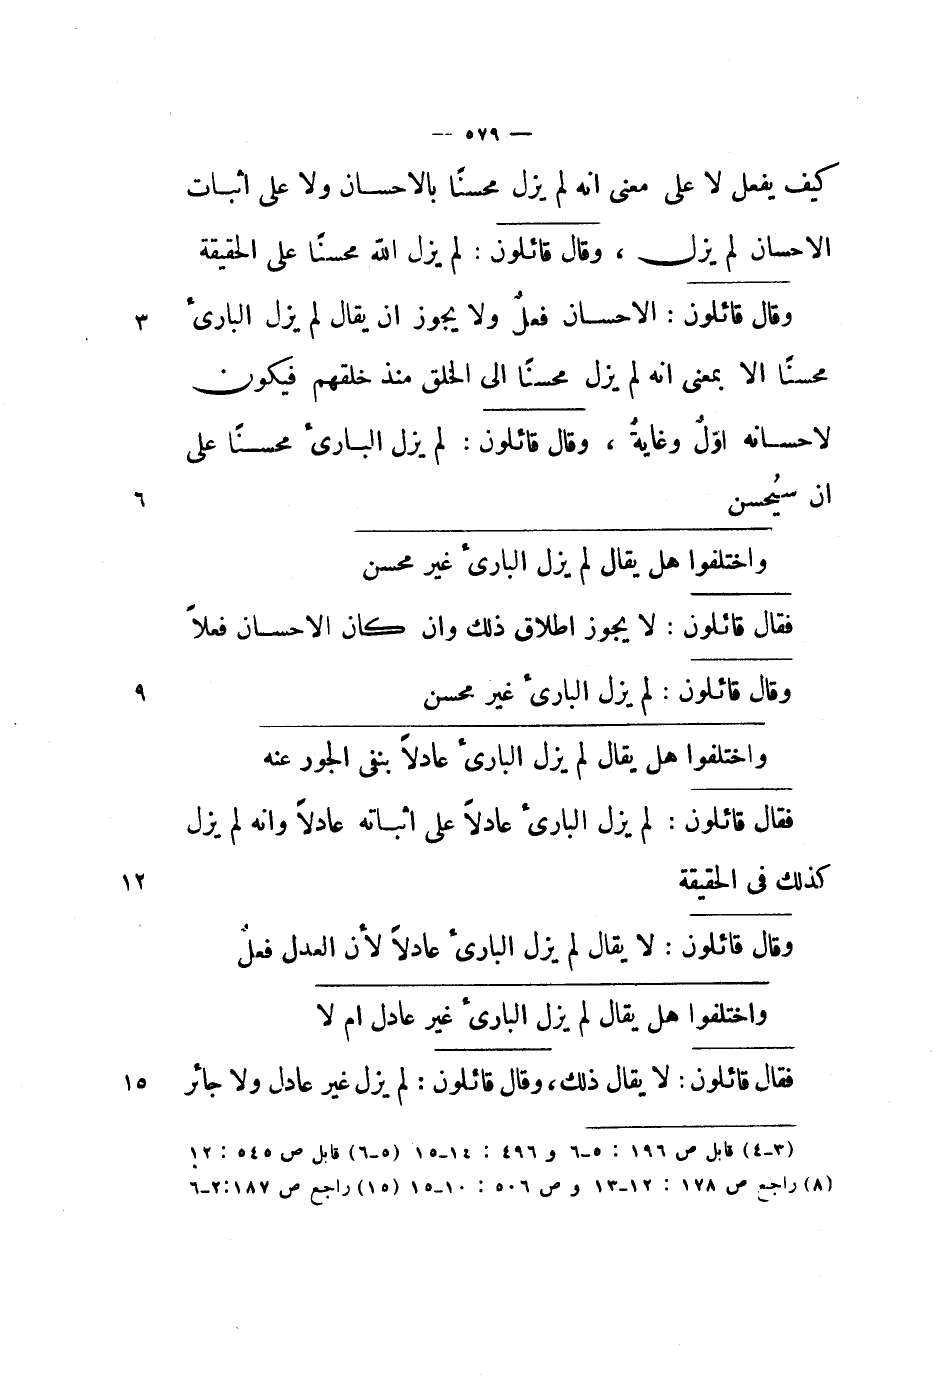 — ٥٧٩ —
كيف يفعل لا على معنى انه لم يزل محسنًا بالاحسان ولا على اثبات
الاحسان لم يزل ، وقال قائلون : لم يزل الله محسنًا على الحقيقة
وقال قائلون : الاحسان فعلٌ ولا يجوز ان يقال لم يزل البارئ ٣
محسنًا الا بمعنى انه لم يزل محسنًا الى الخلق منذ خلقهم فيكون
لاحسانه اوّلٌ وغايةٌ ، وقال قائلون : لم يزل البارئ محسنًا على
ان سيُحسن ٦
واختلفوا هل يقال لم يزل البارئ غير محسن
فقال قائلون : لا يجوز اطلاق ذلك وان كان الاحسان فعلاً
وقال قائلون : لم يزل البارئ غير محسن ٩
واختلفوا هل يقال لم يزل البارئ عادلاً بنفى الجور عنه
فقال قائلون : لم يزل البارئ عادلاً على اثباته عادلاً وانه لم يزل
كذلك فى الحقيقة ١٢
وقال قائلون : لا يقال لم يزل البارئ عادلاً لأن العدل فعلٌ
واختلفوا هل يقال لم يزل البارئ غير عادل ام لا
فقال قائلون : لا يقال ذلك، وقال قائلون : لم يزل غير عادل ولا جائر ١٥
(٣-٤) قابل ص ١٩٦ : ٥-٦ و ٤٩٦ : ١٤-١٥ (٥-٦) قابل ص ٥٤٥ : ١٢
(٨) راجع ص ١٧٨ : ١٢-١٣ و ص ٥٠٦ : ١٠-١٥ (١٥) راجع ص ١٨٧:٢-٦